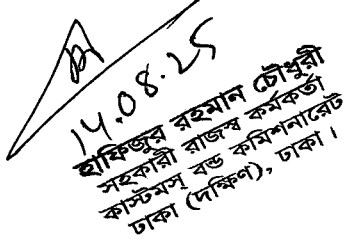 14.08.25
হাফিজুর রহমান চৌধুরী
সহকারী রাজস্ব কর্মকর্তা
কাস্টমস্ বন্ড কমিশনারেট
ঢাকা (দক্ষিণ), ঢাকা।